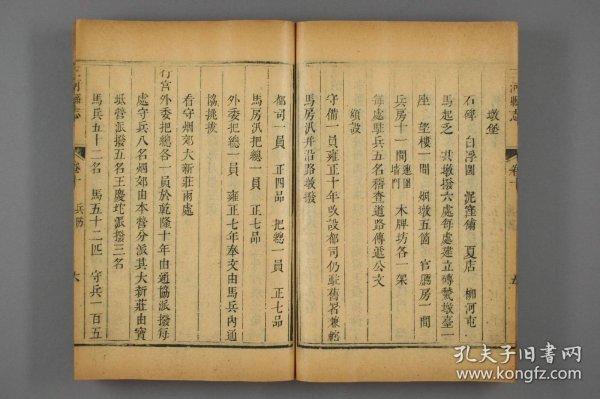 三河縣志
卷十
五
墩堡
石碑 白浮圖 泥窪鋪 夏店 柳河屯
馬起乏 其墩撥六處每處建立磚甃墩臺一
座 望樓一間 烟墩五箇 官廳房一間
兵房十一間 連圍墻門 木牌坊各一架
每處駐兵五名稽查道路傳遞公文
額設
守備一員雍正十年改設都司仍駐舊署兼轄
馬房汛并沿路墩撥
都司一員 正四品 把總一員 正七品
馬房汛把總一員 正七品
外委把總一員 雍正七年奉文由馬兵內通
協挑拔
看守烟郊大新莊兩處
行宮外委把總各一員於乾隆十年由通協派撥每
處守兵八名烟郊由本營分派其大新莊由寶
坻營派撥五名王慶坨派撥三名
馬兵五十二名 馬五十二匹 守兵一百五
三河縣志
卷十 兵防
六
孔夫子旧書网
www.kongfz.com